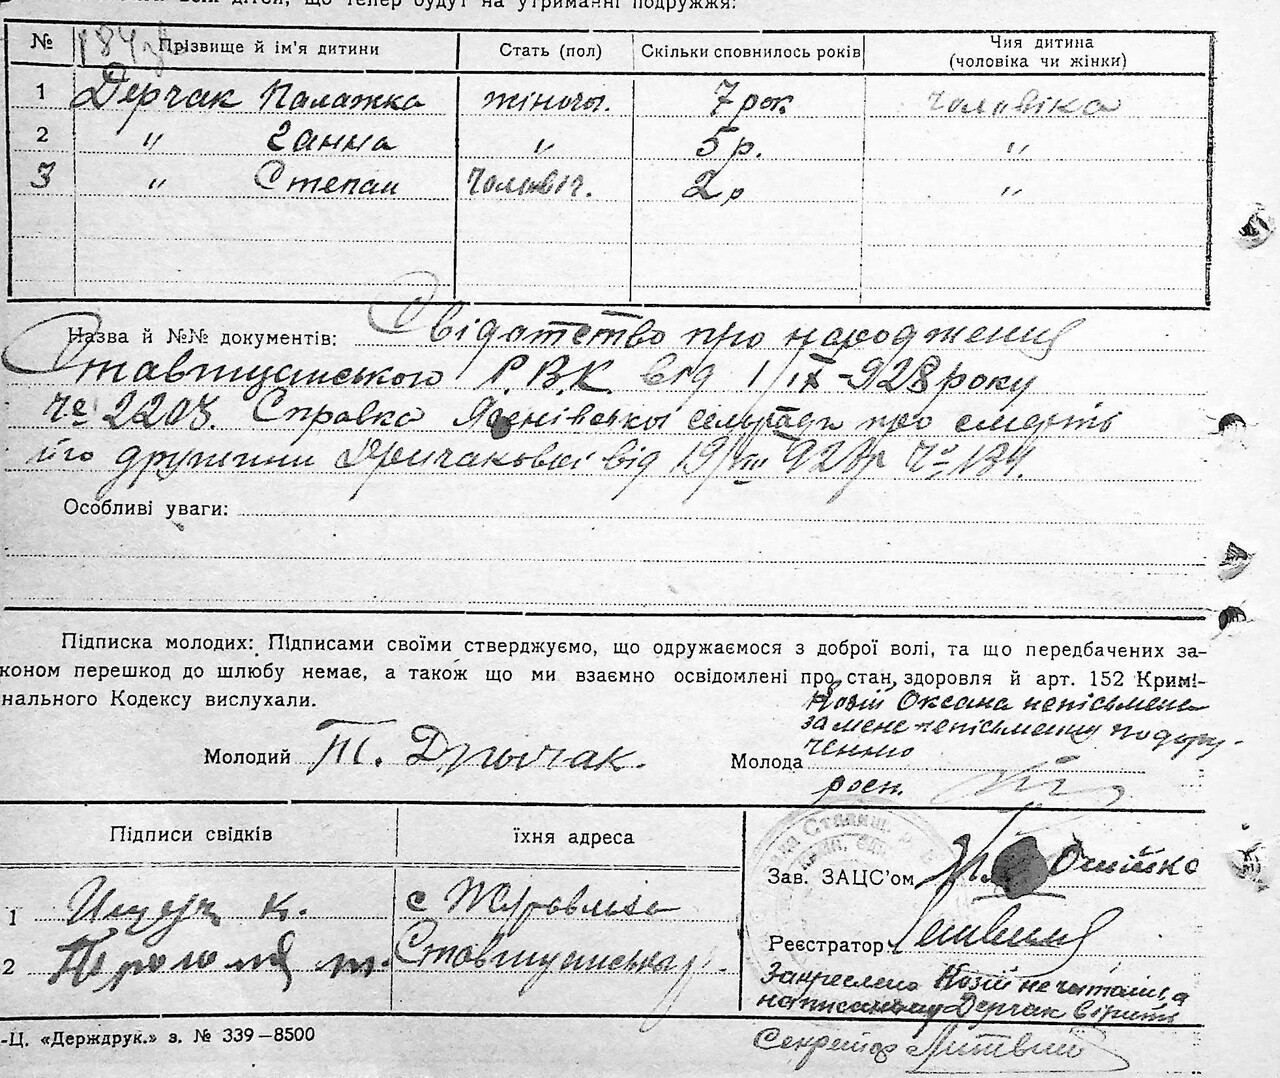 всіх дітей, що тепер будут на утриманні подружжя:
№ Прізвище й ім'я дитини Стать (пол) Скільки сповнилось років Чия дитина (чоловіка чи жінки)
1 Дерчак Палажка жіноч. 7 рок. чоловіка
2 " Ганна " 5 р. "
3 " Степан чоловіч. 2 р "
Назва й №№ документів: Свідотство про народження
Ставищанського Р.В.К від 1/IX-928 року
№ 2203. Справка Ясенівської сельради про смерть
його дружини Дричакової від 19/VIII 928р № 134.
Особливі уваги:
Підписка молодих: Підписами своїми стверджуємо, що одружаємося з доброї волі, та що передбачених за-
коном перешкод до шлюбу немає, а також що ми взаємно освідомлені про стан здоровля й арт. 152 Кримі-
нального Кодексу вислухали.
Козій Оксана непісьмена
за мене непісьмення по дору-
ченню
Молодий Т. Дрычак. Молода
росп.
Підписи свідків їхня адреса
Зав. ЗАЦС'ом
1 к. с Журавлиха
Реєстратор
2 т. Ставищанська
Закреслено Козій не читати, а
написанному Дерчак вірить
Секретар Литвин
-Ц. «Держдрук.» з. № 339—8500